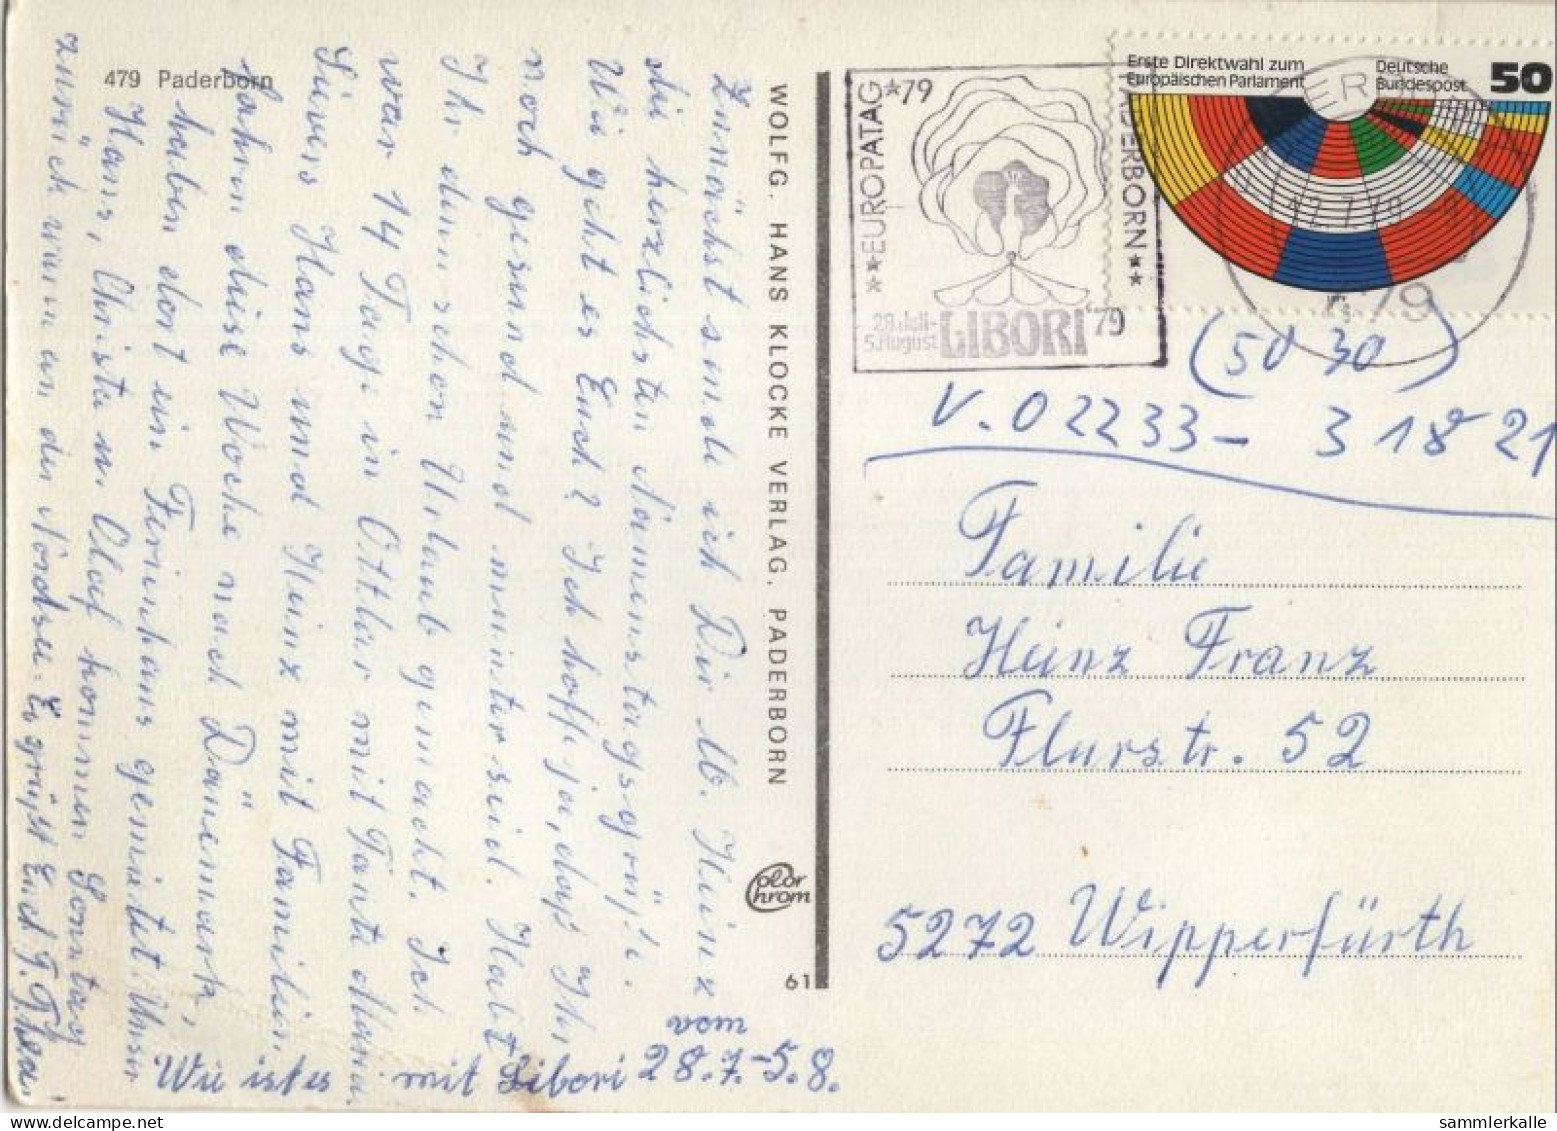 479 Paderborn
Zunächst sende ich Dir lb. Heinz
die herzlichsten Namenstagsgrüße.
Wie geht es Euch? Ich hoffe ja, daß Ihr
noch gesund und munter seid. Habt
Ihr denn schon Urlaub gemacht. Ich
war 14 Tage in Ottlar mit Tante Maria.
Hans und Heinz mit Familien
fahren diese Woche nach Dänemark,
haben dort ein Ferienhaus gemietet. Unser
Hans, Christa u. Olaf kommen Sonntag
zurück waren an der Nordsee. Es grüßt Euch T. Thea
Wie ist es mit Libori vom 28.7.-5.8.
WOLFG. HANS KLOCKE VERLAG, PADERBORN
Color Chrom
61
**EUROPATAG*79
PADERBORN**
28. Juli-
5. August
LIBORI '79
Erste Direktwahl zum
Europäischen Parlament
Deutsche
Bundespost
50
(50 30)
V. 02233 - 31821
Familie
Heinz Franz
Flurstr. 52
5272 Wipperfürth
sammlerkalle